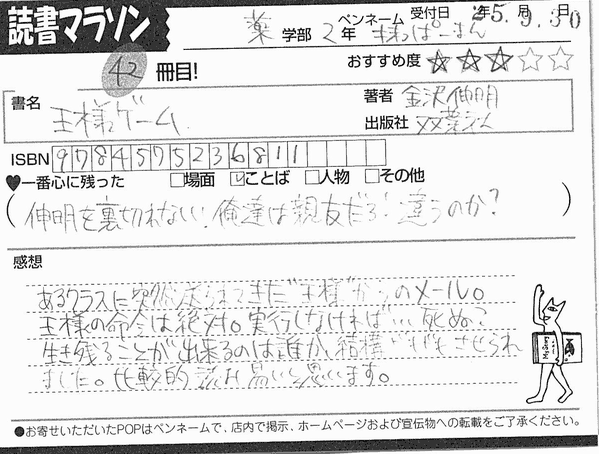 読書マラソン
薬 学部 2年 ペンネーム すわっぱーまん 受付日 25年 9月 30日
42 冊目!
おすすめ度 ★★★☆☆
書名 王様ゲーム
著者 金沢伸明
出版社 双葉
ISBN 9784575236811
♥一番心に残った □場面 ☑ことば □人物 □その他
(伸明を裏切れない!俺達は親友だろ!違うのか?)
感想
あるクラスに突然送られてきた"王様"からのメール。
王様の命令は絶対。実行しなければ…死ぬ?
生き残ることが出来るのは誰か、結構 させられ
ました。比較的読み易いと思います。
●お寄せいただいたPOPはペンネームで、店内で掲示、ホームページおよび宣伝物への転載をご了承ください。